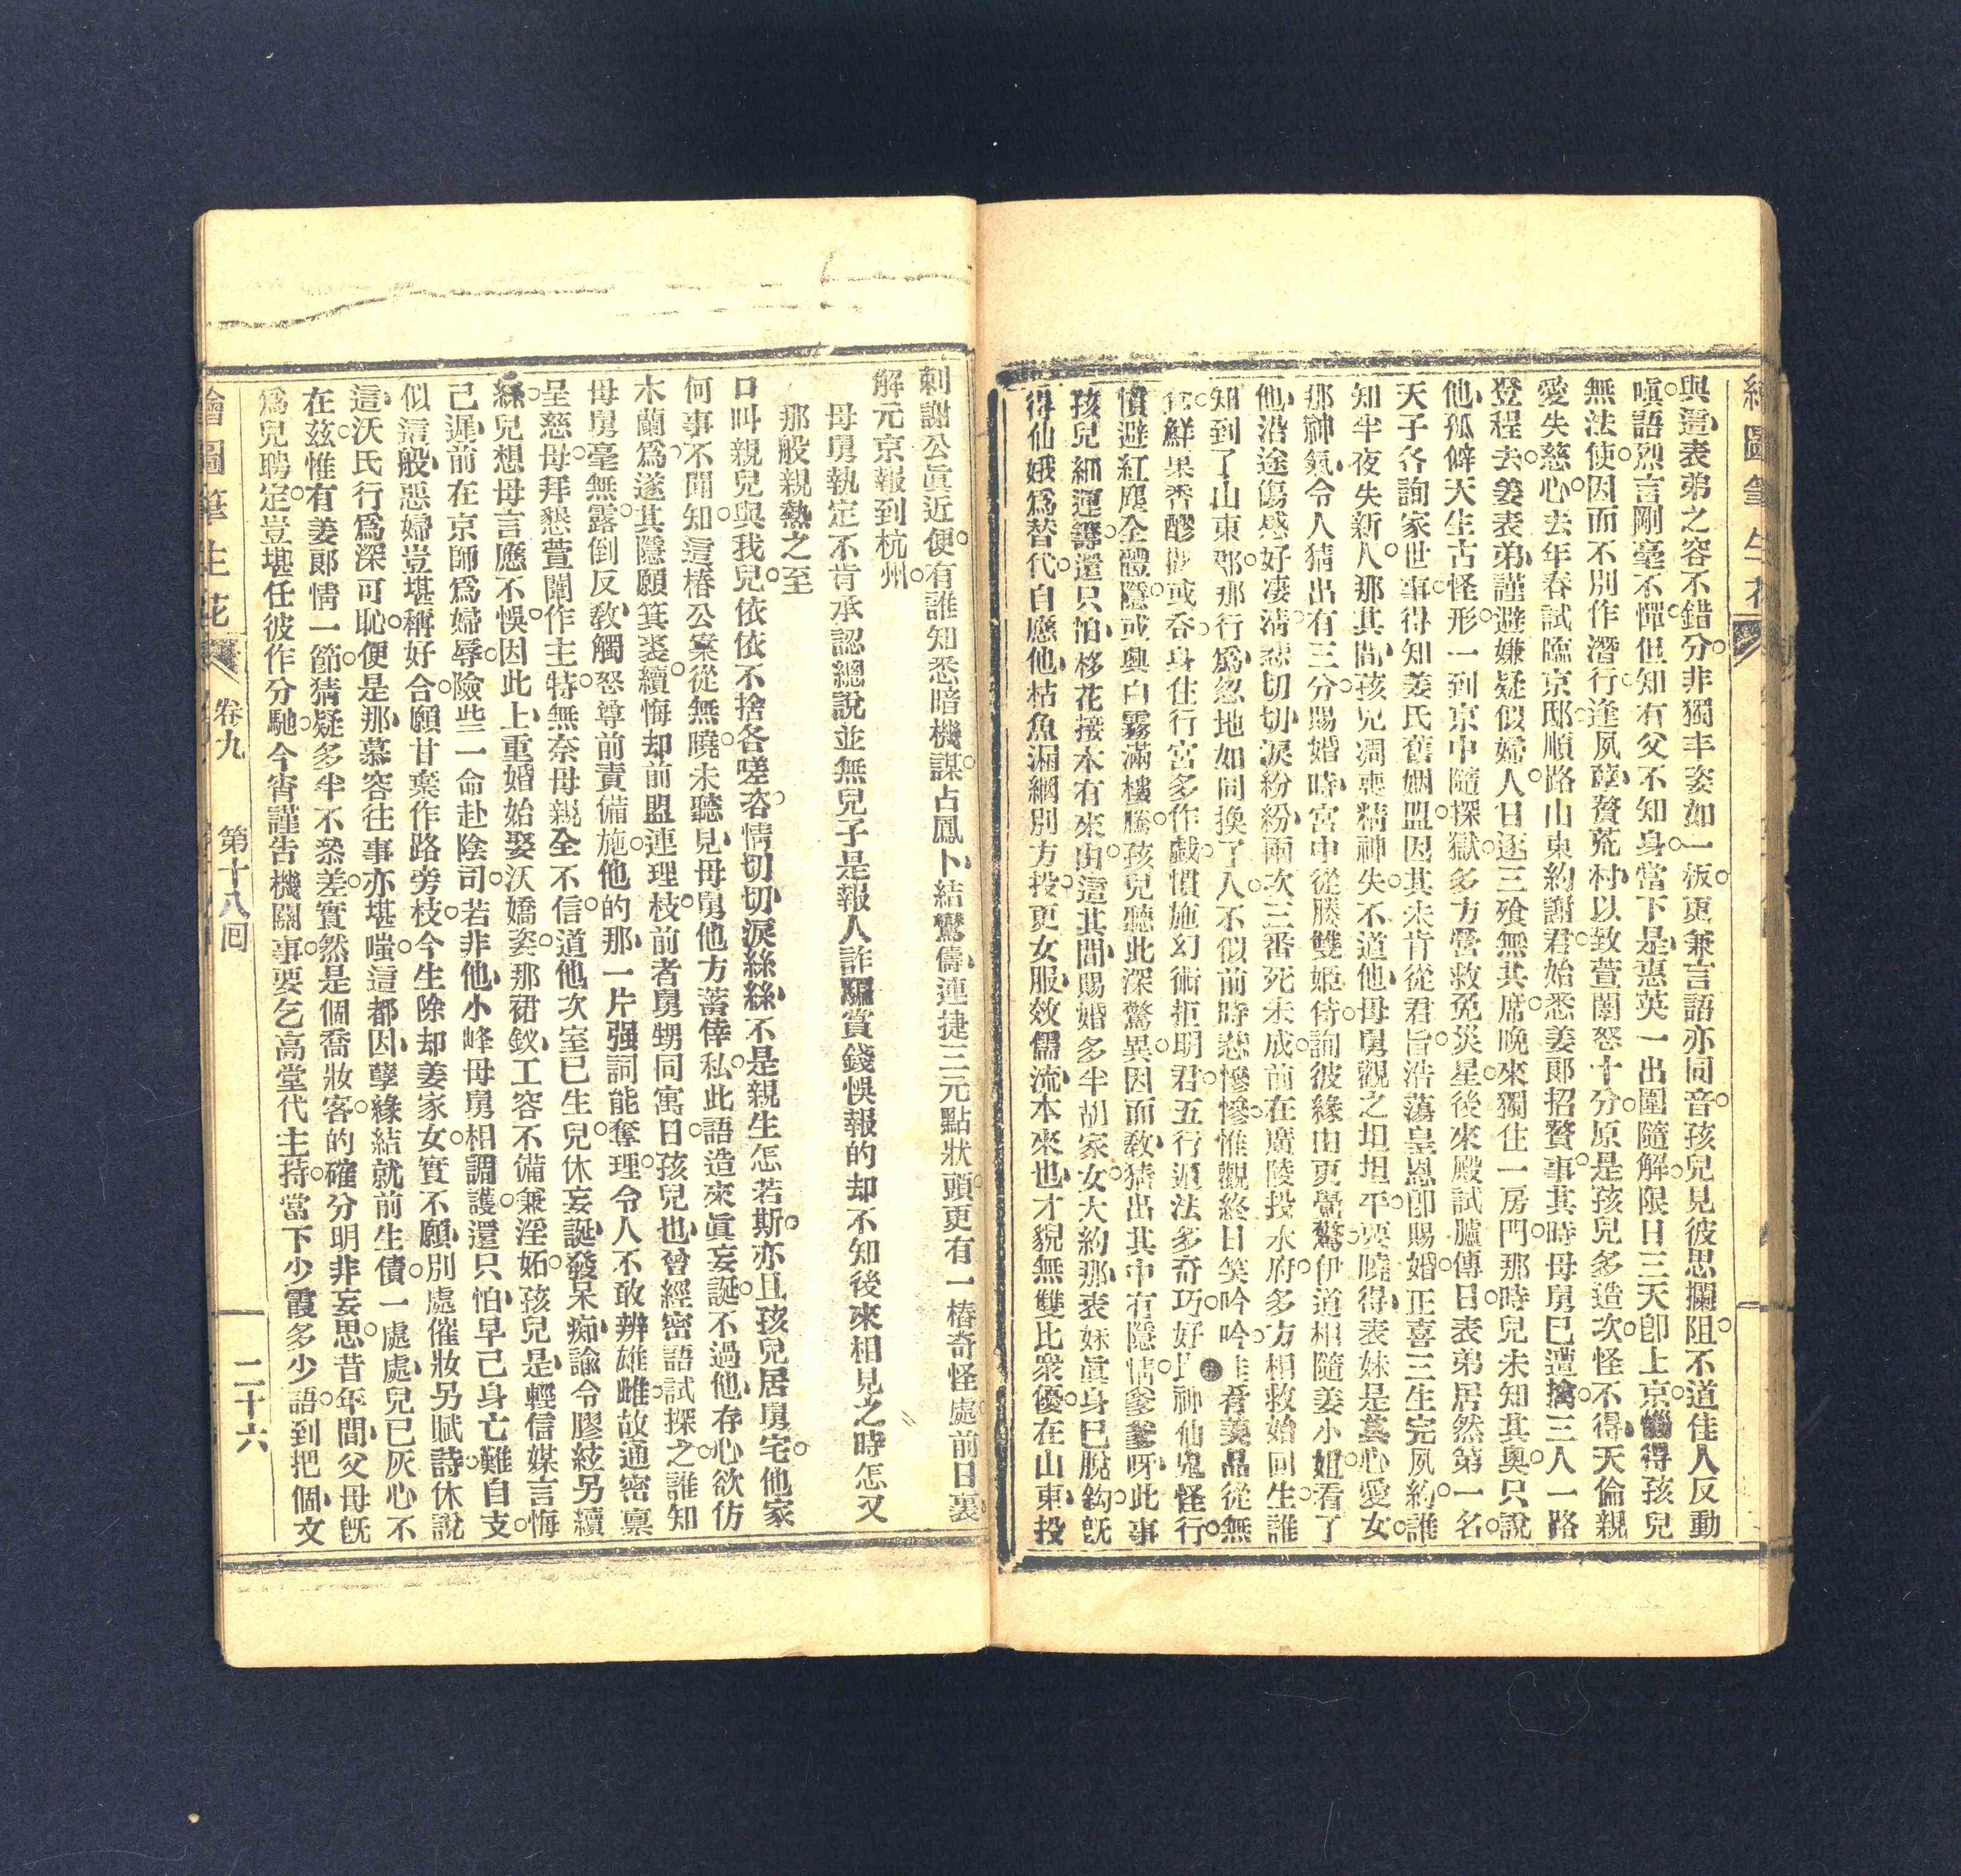 繪圖筆生花
與這表弟之容不錯分。非獨丰姿如一板。更兼言語亦同音。孩兒見彼思攔阻。不道佳人反動
嗔。語烈言剛毫不憚。但知有父不知身。當下是、惠英一出圍隨解。限日三天卽上京。得孩兒
無法使。因而不別作潛行。逢夙孽、贅荒村。以致萱闈怒十分。原是孩兒多造次。怪不得、天倫親
愛失慈心。去年春試臨京邸。順路山東約謝君。始悉姜郎招贅事。其時母舅已遭擒。三人一路
登程去。姜表弟、謹避嫌疑似婦人。日逐三飱無共席。晚來獨住一房門。那時兒未知其奧。只說
他、孤僻天生古怪形。一到京中隨探獄。多方營救免災星。後來殿試臚傳日。表弟居然第一名
天子各詢家世事。得知姜氏舊姻盟。因其未肯從君旨。浩蕩皇恩卽賜婚。正喜三生完夙約。誰
知半夜失新人。那其間、孩兒凋喪精神失。不道他、母舅觀之坦坦平。要曉得、表妹是其心愛女。
那神氣、令人猜出有三分。賜婚時、宮中從媵雙姬侍。詢彼緣由更覺驚。伊道相隨姜小姐。看了
他、沿途傷感好凄淸。悲切切、淚紛紛。兩次三番死未成。前在廣陵投水府。多方相救始回生。誰
知到了山東郡。那行爲、忽地如同換了人。不似前時悲慘慘。惟觀終日笑吟吟。佳肴美品從無
鮮果香醪或吞。身住行宮多作戲。慣施幻術拒明君。五行遁法多奇巧。好比神仙鬼怪行。
慣避紅塵全體隱。或興白霧滿樓騰。孩兒聽此深驚異。因而敎、猜出其中有隱情。爹爹呀、此事
孩兒細運籌。還只怕、移花接木有來由。這其間、賜婚多半胡家女。大約那、表妹眞身已脫鈎。旣
得仙娥爲替代。自應他、枯魚漏網別方投。更女服、效儒流。本來也、才貌無雙比衆優。在山東、投
刺謝公眞近便。有誰知悉暗機謀。占鳳卜、結鸞儔。連捷三元點狀頭。更有一樁奇怪處。前日裏、
解元京報到杭州。
母舅執定不肯承認總說並無兒子是報人詐騙賞錢悞報的却不知後來相見之時怎又
那般親熱之至
口叫親兒與我兒。依依不捨各嗟咨。情切切、淚絲絲。不是親生怎若斯。亦且孩兒居舅宅。他家
何事不聞知。這樁公案從無曉。未聽見、母舅他方蓄倖私。此語造來眞妄誕。不過他、存心欲仿
木蘭爲。遂其隱願箕裘續。悔却前盟連理枝。前者舅甥同寓日。孩兒也、曾經密語試探之。誰知
母舅毫無露。倒反敎、觸怒尊前責備施。他的那、一片强詞能奪理。令人不敢辨雄雌。故通密稟
呈慈母。拜懇萱闈作主特。無奈母親全不信。道他次室已生兒。休妄誕、發呆痴。諭令膠絃另續
絲。兒想母言應不悞。因此上、重婚始娶沃嬌姿。那裙釵、工容不備兼淫妬。孩兒是、輕信媒言悔
己遲。前在京師爲婦辱。險些一命赴陰司。若非他、小峰母舅相調護。還只怕、早己身亡難自支。
似這般、惡婦豈堪稱好合。願甘棄作路旁枝。今生除却姜家女。實不願、別處催妝另賦詩。休說
這、沃氏行爲深可恥。便是那、慕容往事亦堪嗤。這都因、孽緣結就前生債。一處處、兒已灰心不
在茲。惟有姜郎情一節。猜疑多半不叅差。實然是個喬妝客。的確分明非妄思。昔年間、父母旣
爲兒聘定。豈堪任彼作分馳。今宵謹告機關事。要乞高堂代主持。當下少霞多少語。到把個、文
繪圖筆生花 卷九 第十八回 二十六